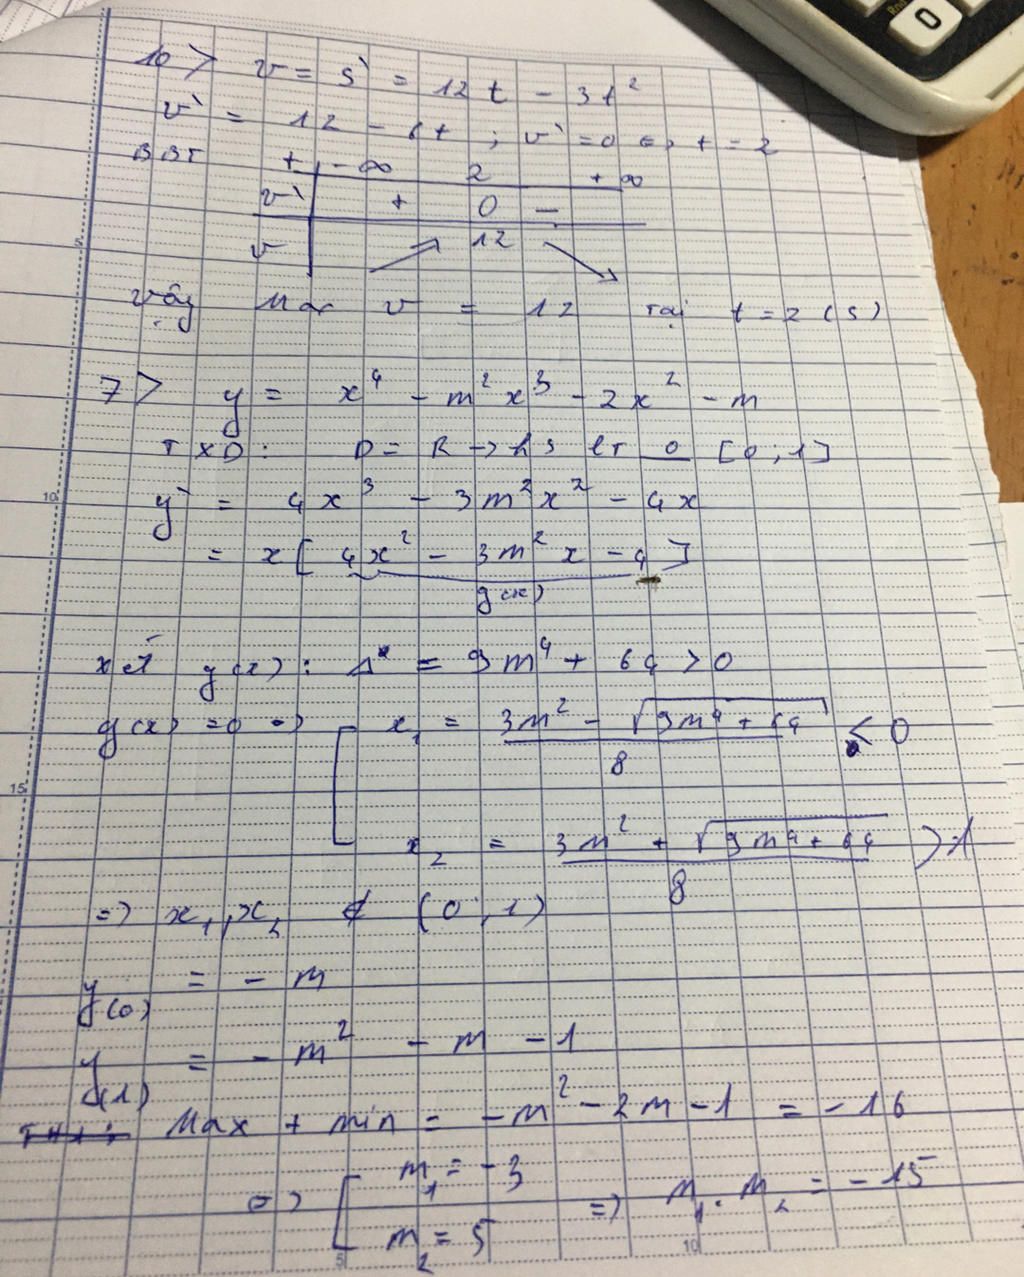 10> v = s' = 12t - 3t²
v' = 12 - 6t ; v' = 0 <=> t = 2
BBT t -∞ 2 +∞
v' + 0 -
v ↗ 12 ↘
Vậy Max v = 12 tại t = 2 (s)
7> y = x⁴ - m²x³ - 2x² - m
TXD: D = R → hs lt [0;1]
y' = 4x³ - 3m²x² - 4x
= x[4x² - 3m²x - 4]
g(x)
xét g(x): Δ = 9m⁴ + 64 > 0
g(x) = 0 => [ x₁ = (3m² - √(9m⁴ + 64))/8 < 0
x₂ = (3m² + √(9m⁴ + 64))/8 > 1
=> x₁, x₂ ∉ (0;1)
y(0) = -m
y(1) = -m² - m - 1
Max + min = -m² - 2m - 1 = -16
=> [ m₁ = -3
m₂ = 5 => m₁.m₂ = -15
0
5
10
15
5
10